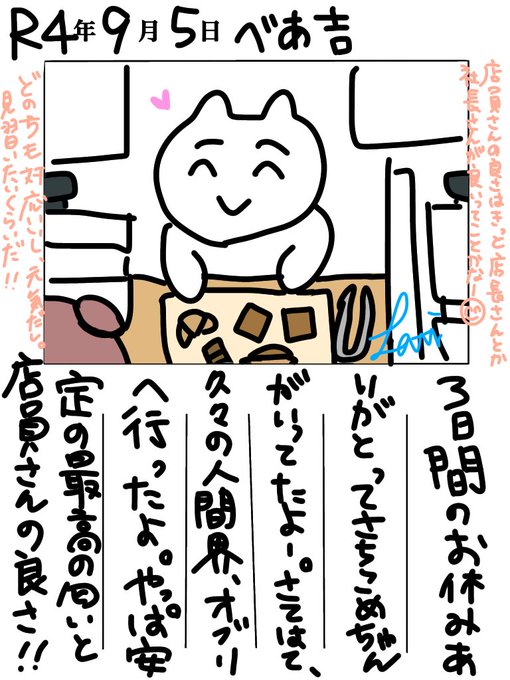 R4年9月5日 べあ吉
店員さんの良さはきっと店長さんとか
社長さんが良いってことかなー
どのちも対応いいし、元気だし。
見習いたいくらいだ!!
Lavi
3日間のお休みあ
りがとってさちこめちゃん
がいってたよー。さてはて、
久々の人間界、オブリ
へ行ったよ。やっぱ安
定の最高の匂いと
店員さんの良さ!!